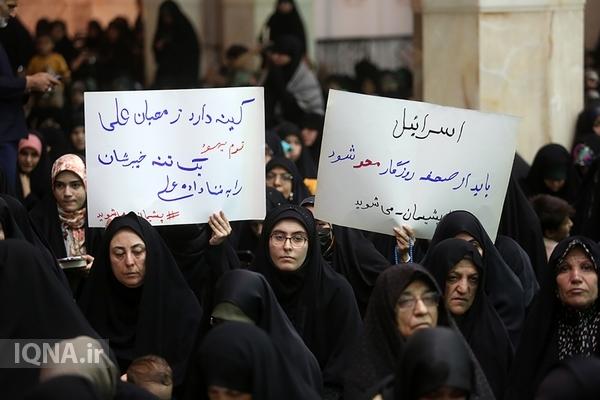 کینه دارد ز محبان علی
قوم یهود
یک تنه خیبرشان
را به فنا داده علی
#پشیمان-می‌شوید
اسرائیل
باید از صفحه روزگار محو شود
پشیمان-می شوید
IQNA.ir